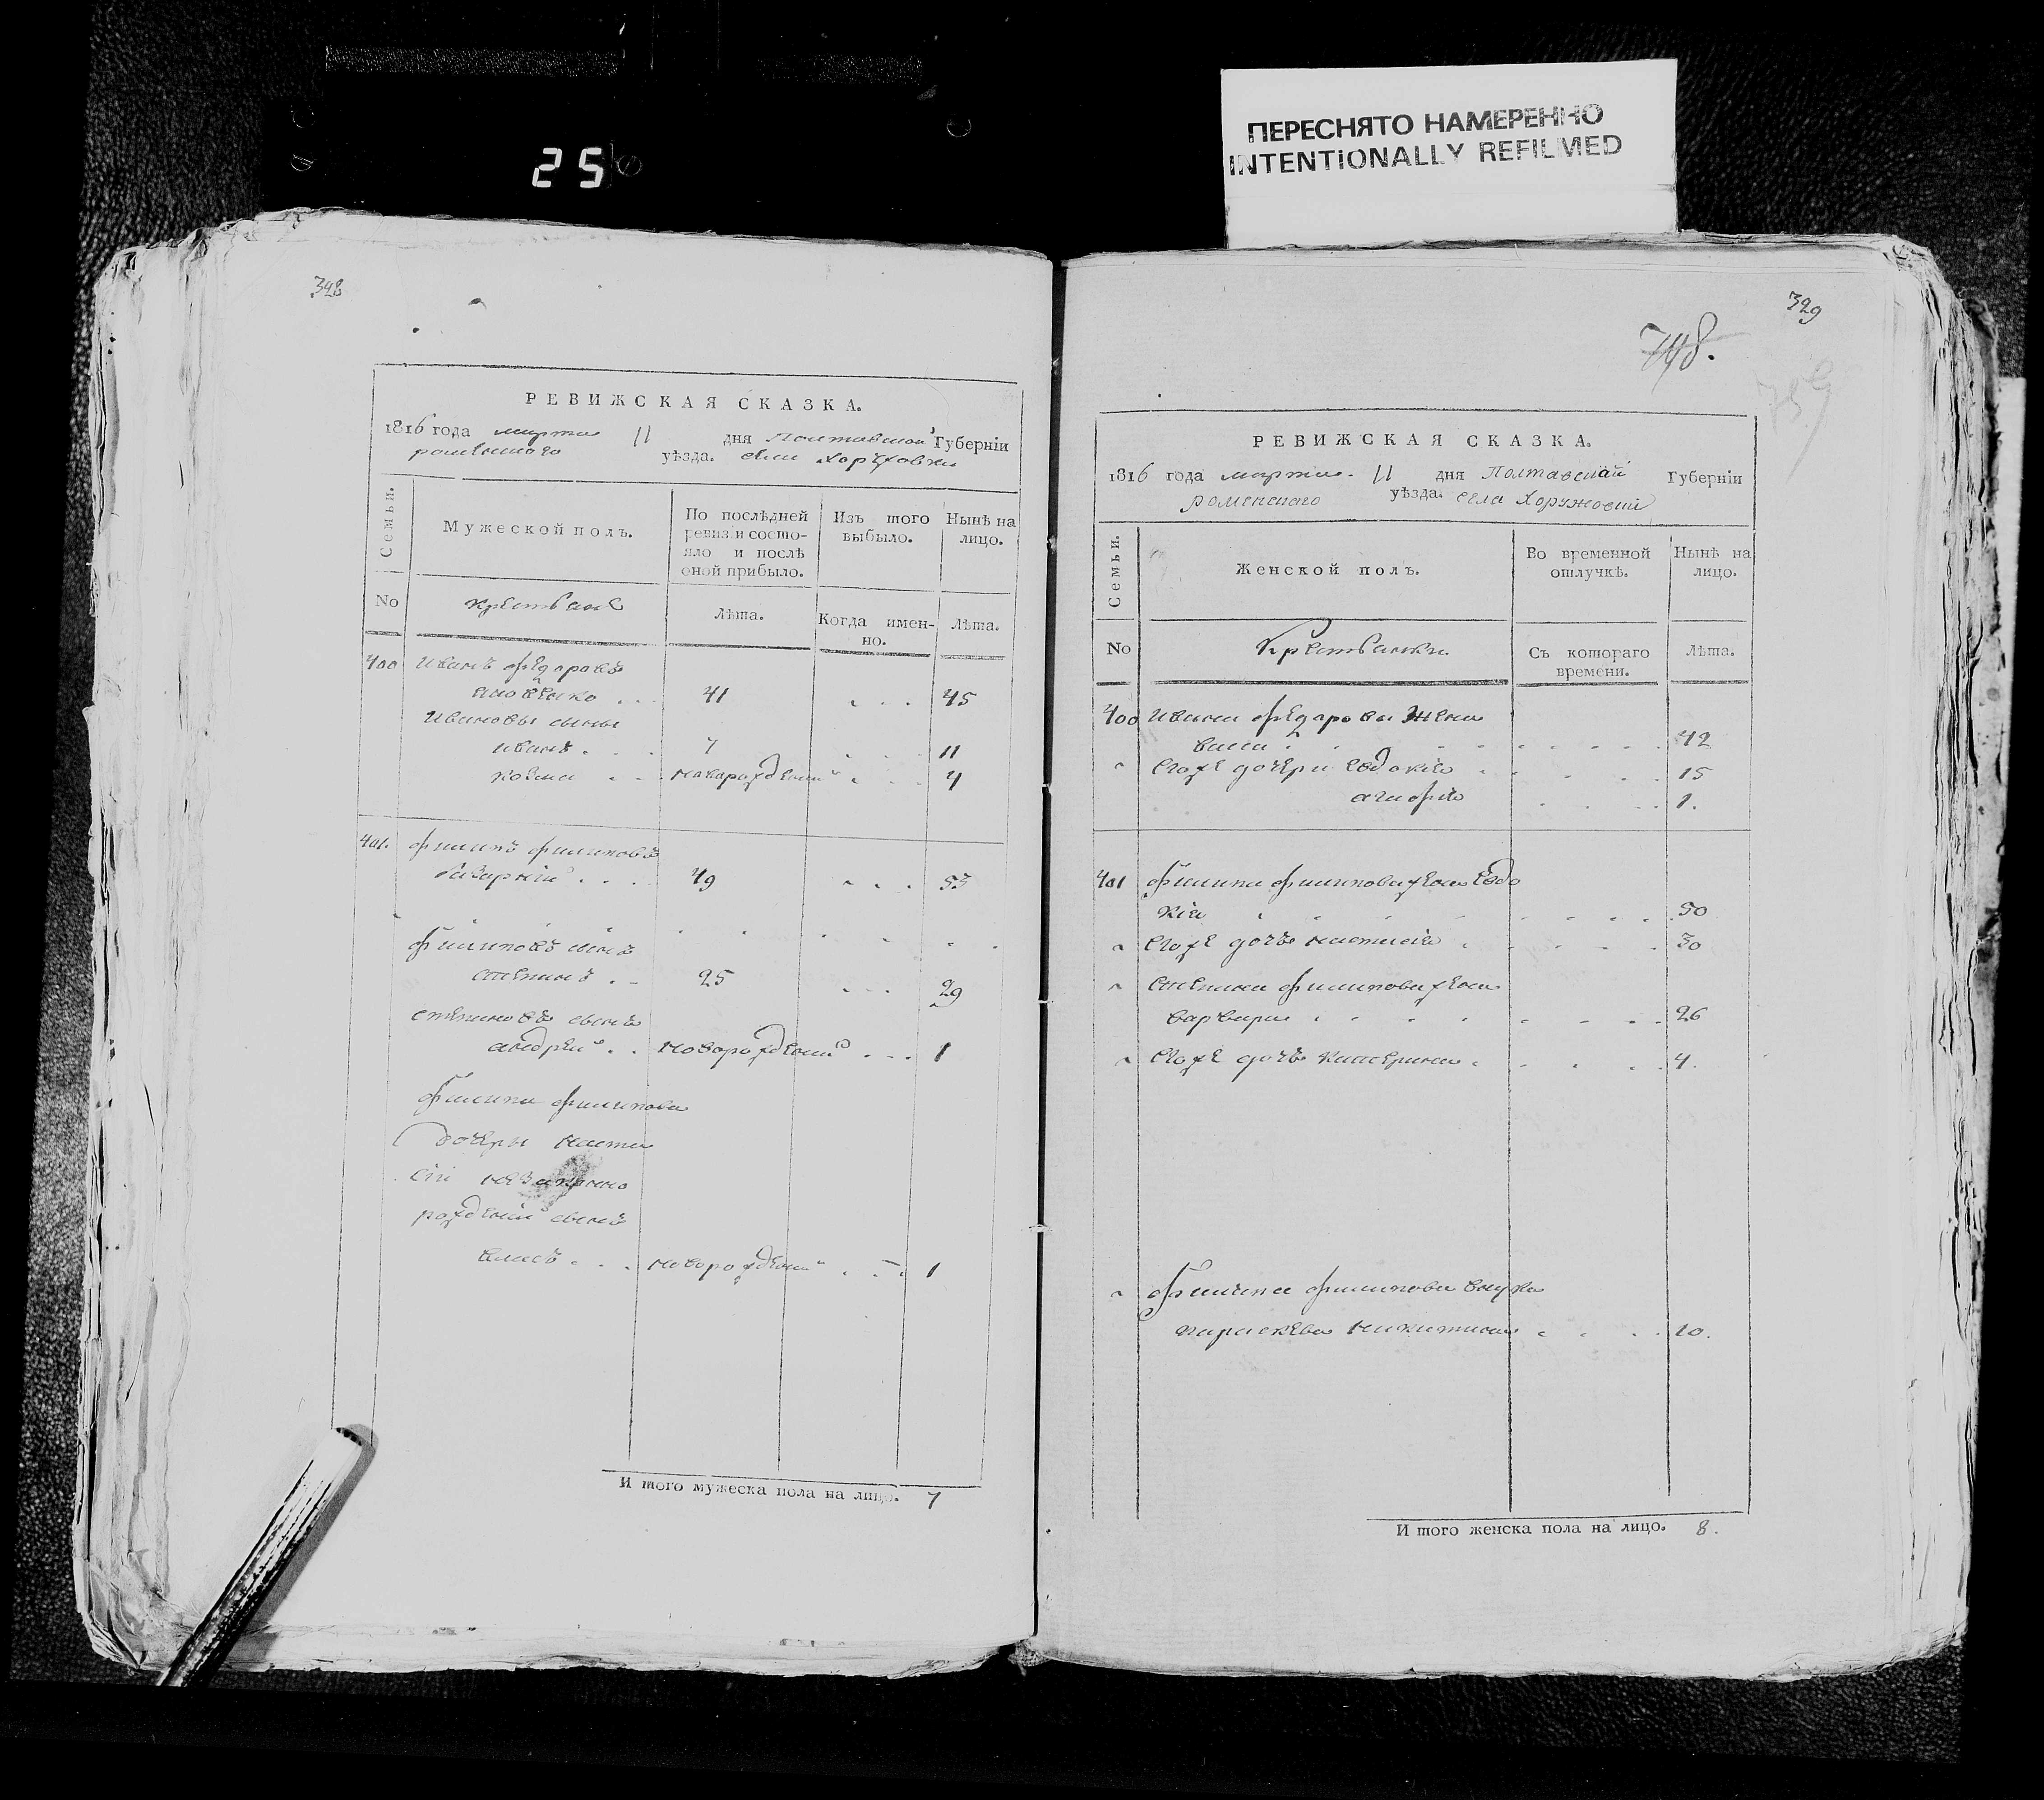 25
ПЕРЕСНЯТО НАМЕРЕННО
INTENTIONALLY REFILMED
328
РЕВИЖСКАЯ СКАЗКА.
1816 года марта 11 дня Полтавской Губернїи
роменского уѣзда. села Хоружовки
Семьи.
Мужеской полъ.
По послѣдней ревизїи состояло и послѣ оной прибыло.
Изъ того выбыло.
Нынѣ на лицо.
No
крестьяне
Лѣта.
Когда именно.
Лѣта.
400 Иванъ федоровъ
41 . . . 45
Ивановы сыны
иванъ . . . 7 . . . 11
козма . . новорожденый . . . 4
401. филипъ филиповъ
49 . . . 53
филиповъ сынъ
степанъ . . 25 . . . 29
степановъ сынъ
андрей . . новорожденый . . . 1
филипа филипова
дочеры наста
сїи незаконно
рожденый сынъ
власъ . . . новорожденый . . . 1
И того мужеска пола на лицо. 7
329
748.
РЕВИЖСКАЯ СКАЗКА.
1816 года марта 11 дня Полтавской Губернїи
роменскаго уѣзда. села Хоружовки
Семьи.
Женской полъ.
Во временной отлучкѣ.
Нынѣ на лицо.
No
Крестьянки
Съ котораго времени.
Лѣта.
400 ивана федорова жена
42
егоже дочери евдокїя 15
агафїя 1.
401 филипа филипова жена Евдо
кїя 50
егоже дочь настасїя 30
степана филипова жена
варвара 26
егоже дочь катерина 4.
филипа филипова внука
параскева никитина 10.
И того женска пола на лицо. 8.